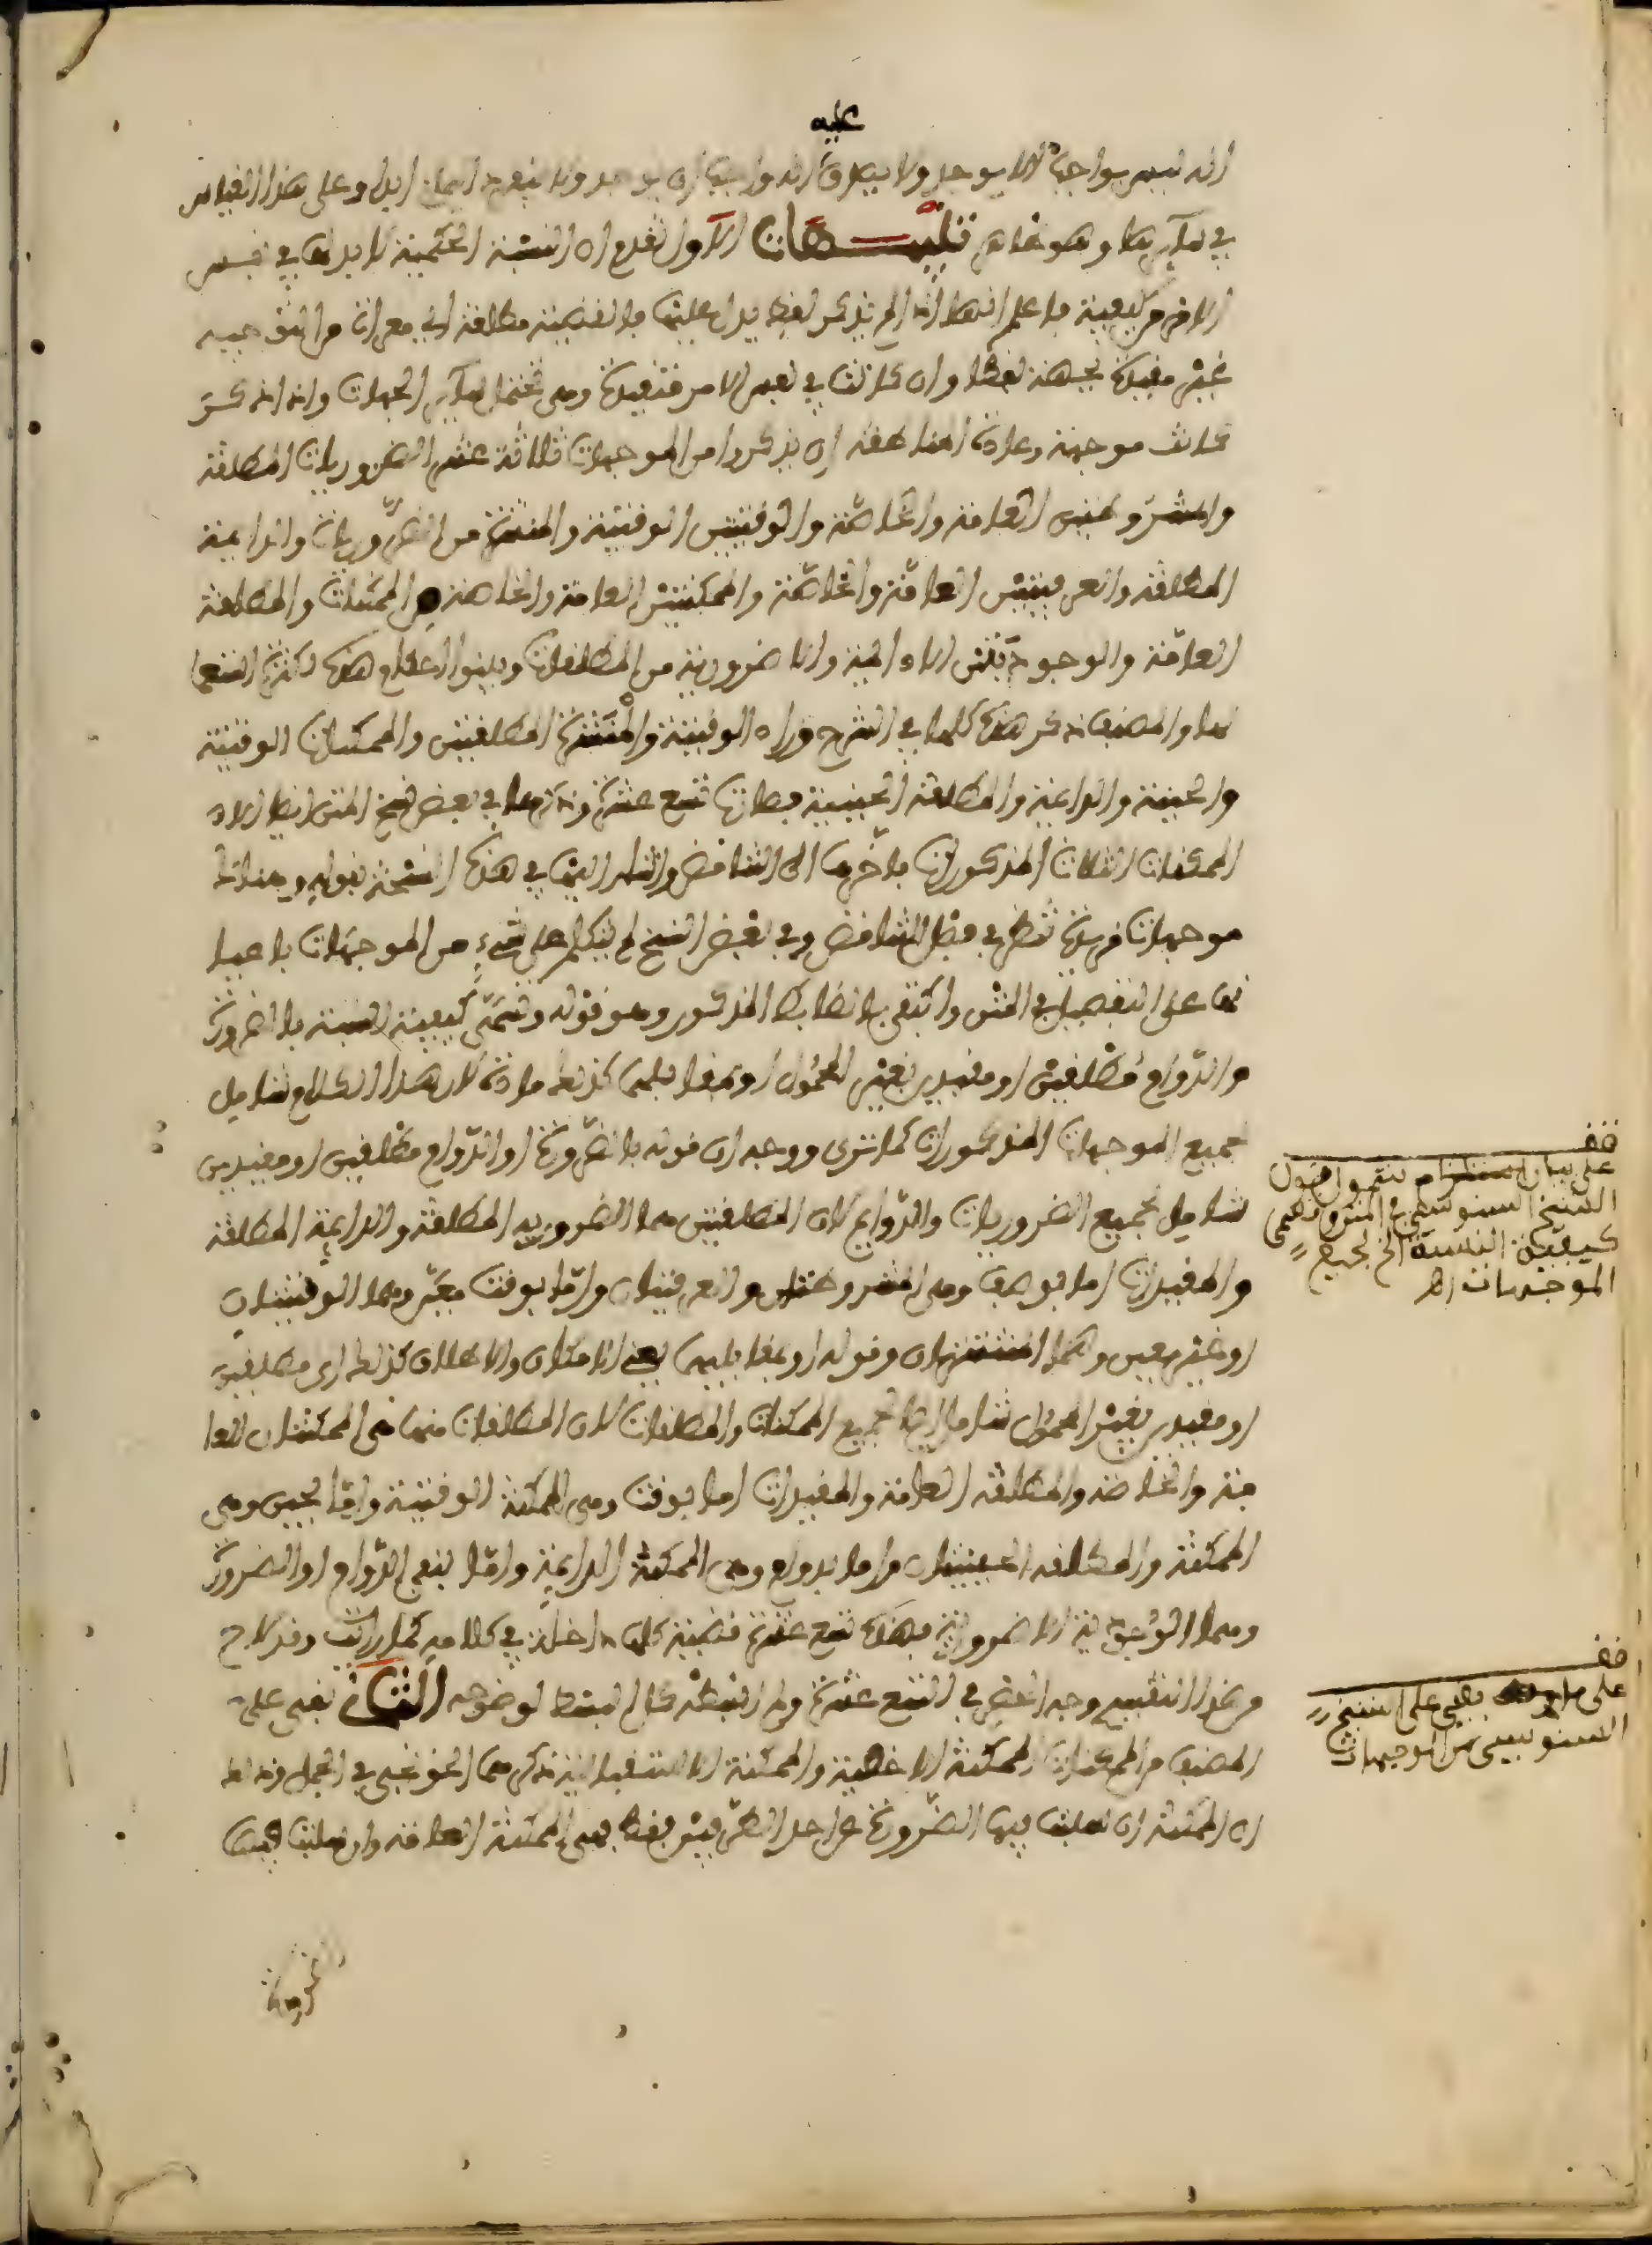 عليه
انه ليس بواجب لا يوجد ولا يصدق انه واجب ان يوجد ولا ينعدم ابدا وعلى هذا القياس
في سايرها وهو ظاهر تنبيهات الاول تقدم ان النسبة الحكمية لا بد لها في نفس
الامر من كيفية فاعلم انها ان لم يذكر لفظ يدل عليها فالقضية مطلقة اي معراة من التوجيه
غير مقيدة بجهة لفظا وان كانت في نفس الامر مقيدة وهي تحتمل ساير الجهات وان ذكر
كانت موجهة وعادة المناطقة ان يذكروا من الموجهات ثلاثة عشر الضروريات المطلقة
والمشروطتين العامة والخاصة والوقتيتين الوقتية والمنتشرة من الضروريات والدايمة
المطلقة والعرفيتين العامة والخاصة والممكنتين العامة والخاصة من الممكنات والمطلقة
العامة والوجوديتين اللادايمة واللاضرورية من المطلقات وبينوا احكام هذه لكثرة استعما
لها والمصنف ذكر هذه كلها في الشرح وزاد الوقتية والمنتشرة المطلقتين والممكنات الوقتية
والحينية والدايمة والمطلقة الحينية فصارت تسع عشرة وذكرها في بعض نسخ المتن ايضا الا
الممكنات الثلاث المذكورات فاخرها الى التناقض واشار اليها في هذه النسخة بقوله وهناك
موجهات فريدة تنظر في فصل التناقض وفي بعض النسخ لم يتكلم على شيء من الموجهات باعيا
نها على التفصيل في المتن واكتفى بالضابط المذكور وهو قوله وتسمى كيفية النسبة بالضرورة
والدوام مطلقين او مقيدين بغير المحمول او بمقابليهما كذلك مادة لان هذا الكلام شامل
لجميع الموجهات المذكورات كما ترى ووجهه ان قوله بالضرورة او الدوام مطلقين او مقيدين
شامل لجميع الضروريات والدوايم لان المطلقتين هما الضرورية المطلقة والدايمة المطلقة
والمقيدات اما بوصف وهي المشروطتان والعرفيتان واما بوقت معين وهما الوقتيتان
او غير معين وهما المنتشرتان وقوله او بمقابليهما يعني الامكان والاطلاق كذلك اي مطلقين
او مقيدين بغير المحمول شامل ايضا لجميع الممكنات والمطلقات لان المطلقات منها هي الممكنتان العا
مة والخاصة والمطلقة العامة والمقيدات اما بوقت وهي الممكنة الوقتية واما بحين وهي
الممكنة والمطلقة الحينيتان واما بدوام وهي الممكنة الدايمة واما بنفي الدوام او الضرورة
وهما الوجودية اللاضرورية فهذه تسع عشرة قضية كلها داخلة في كلامه كما رايت وقد لاح
من هذا التقسيم وجه الحصر في التسع عشرة ولم نبسطه كل البسط لوضوحه الثاني بقي على
المصنف من الممكنات الممكنة الاخصية والممكنة الاستقبالية ذكرهما الخونجي في الجمل وذلك
ان الممكنة ان سلبت فيها الضرورة عن احد الطرفين فقط فهي الممكنة العامة وان سلبت فيها
الضرورة
قف
على بيان استلزام قول
الشيخ السنوسي في المتن وتسمى
كيفية النسبة الخ لجميع
الموجهات اهـ
قف
على ما بقي على الشيخ
السنوسي من الموجهات